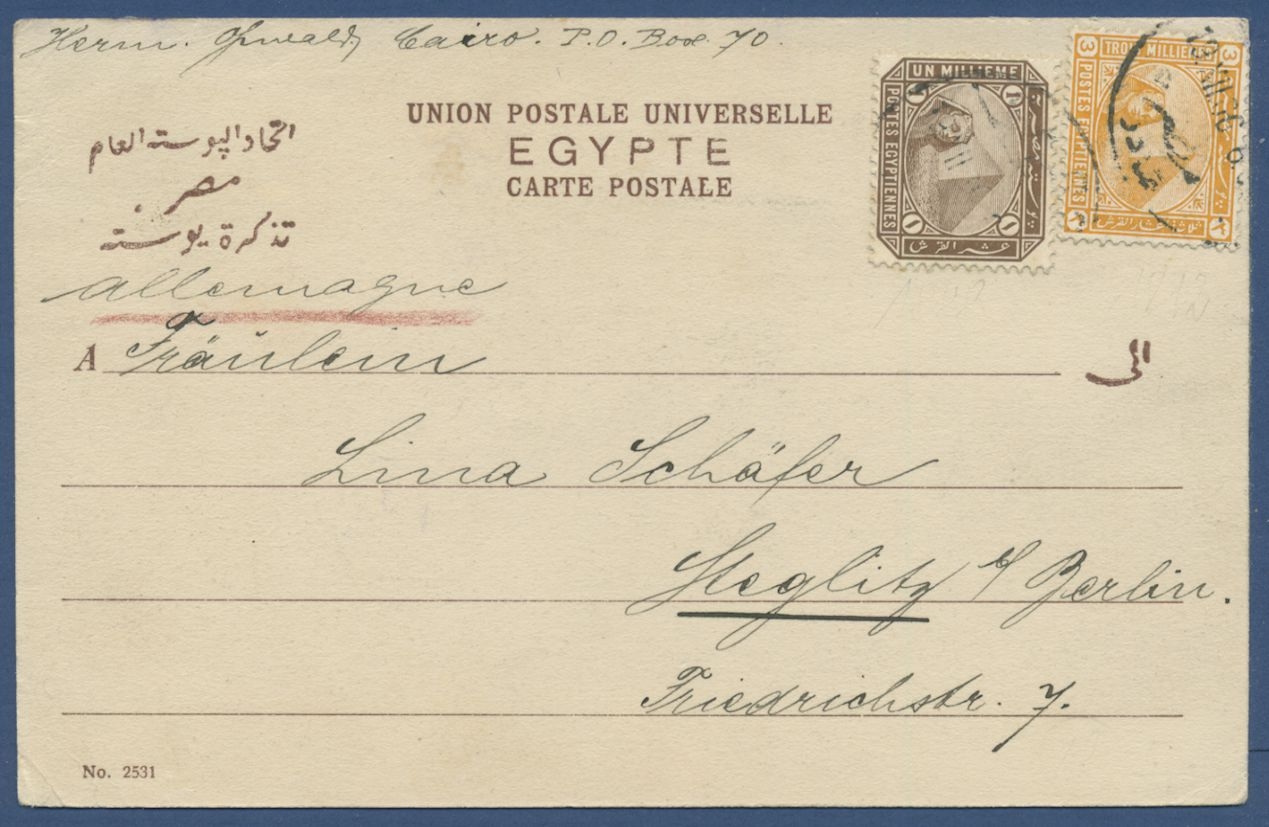 Herm. Oswald, Cairo. P.O. Box. 70.
UNION POSTALE UNIVERSELLE
EGYPTE
CARTE POSTALE
اتحاد البوسته العام
مصر
تذكرة بوسته
UN MILLIEME
1 1
POSTES EGYPTIENNES
بوسته مصريه
عشر القرش
١ ١
TROIS MILLIEMES
3 3
POSTES EGYPTIENNES
٣ ٣
Allemagne
A Fräulein
الى
Lina Schäfer
Steglitz b/ Berlin.
Friedrichstr. 7.
No. 2531